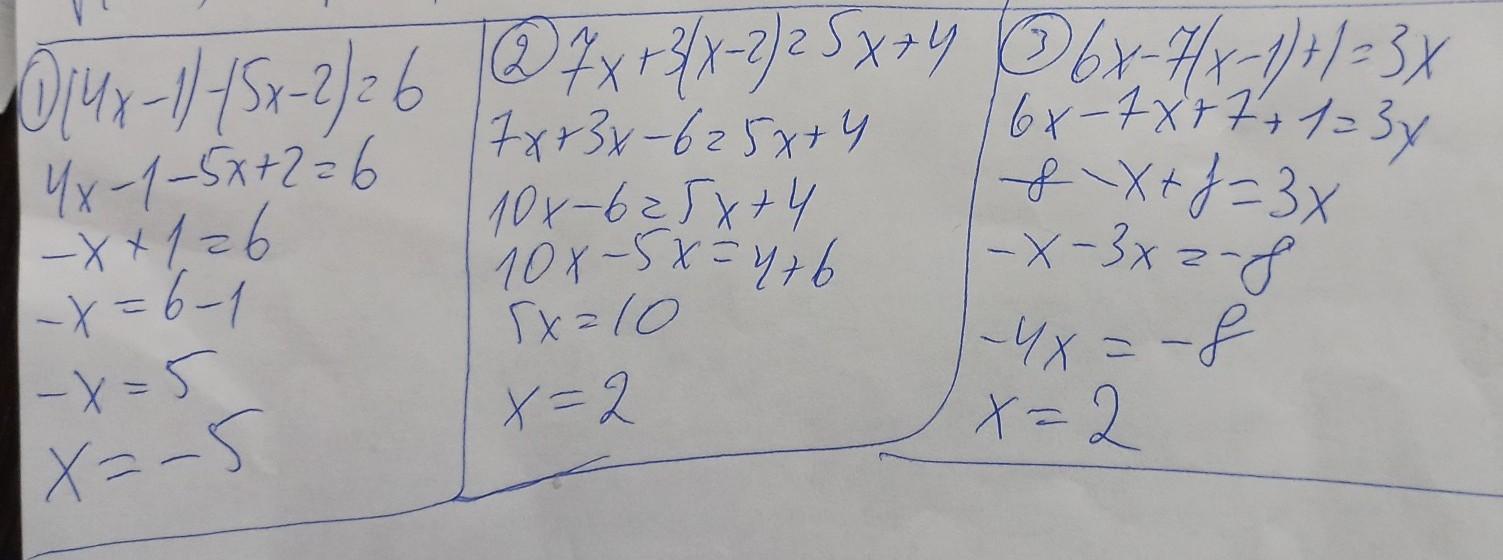 ① (4x-1)-(5x-2)=6
4x-1-5x+2=6
-x+1=6
-x=6-1
-x=5
x=-5
② 7x+3(x-2)=5x+4
7x+3x-6=5x+4
10x-6=5x+4
10x-5x=4+6
5x=10
x=2
③ 6x-7(x-1)+1=3x
6x-7x+7+1=3x
-x+8=3x
-x-3x=-8
-4x=-8
x=2